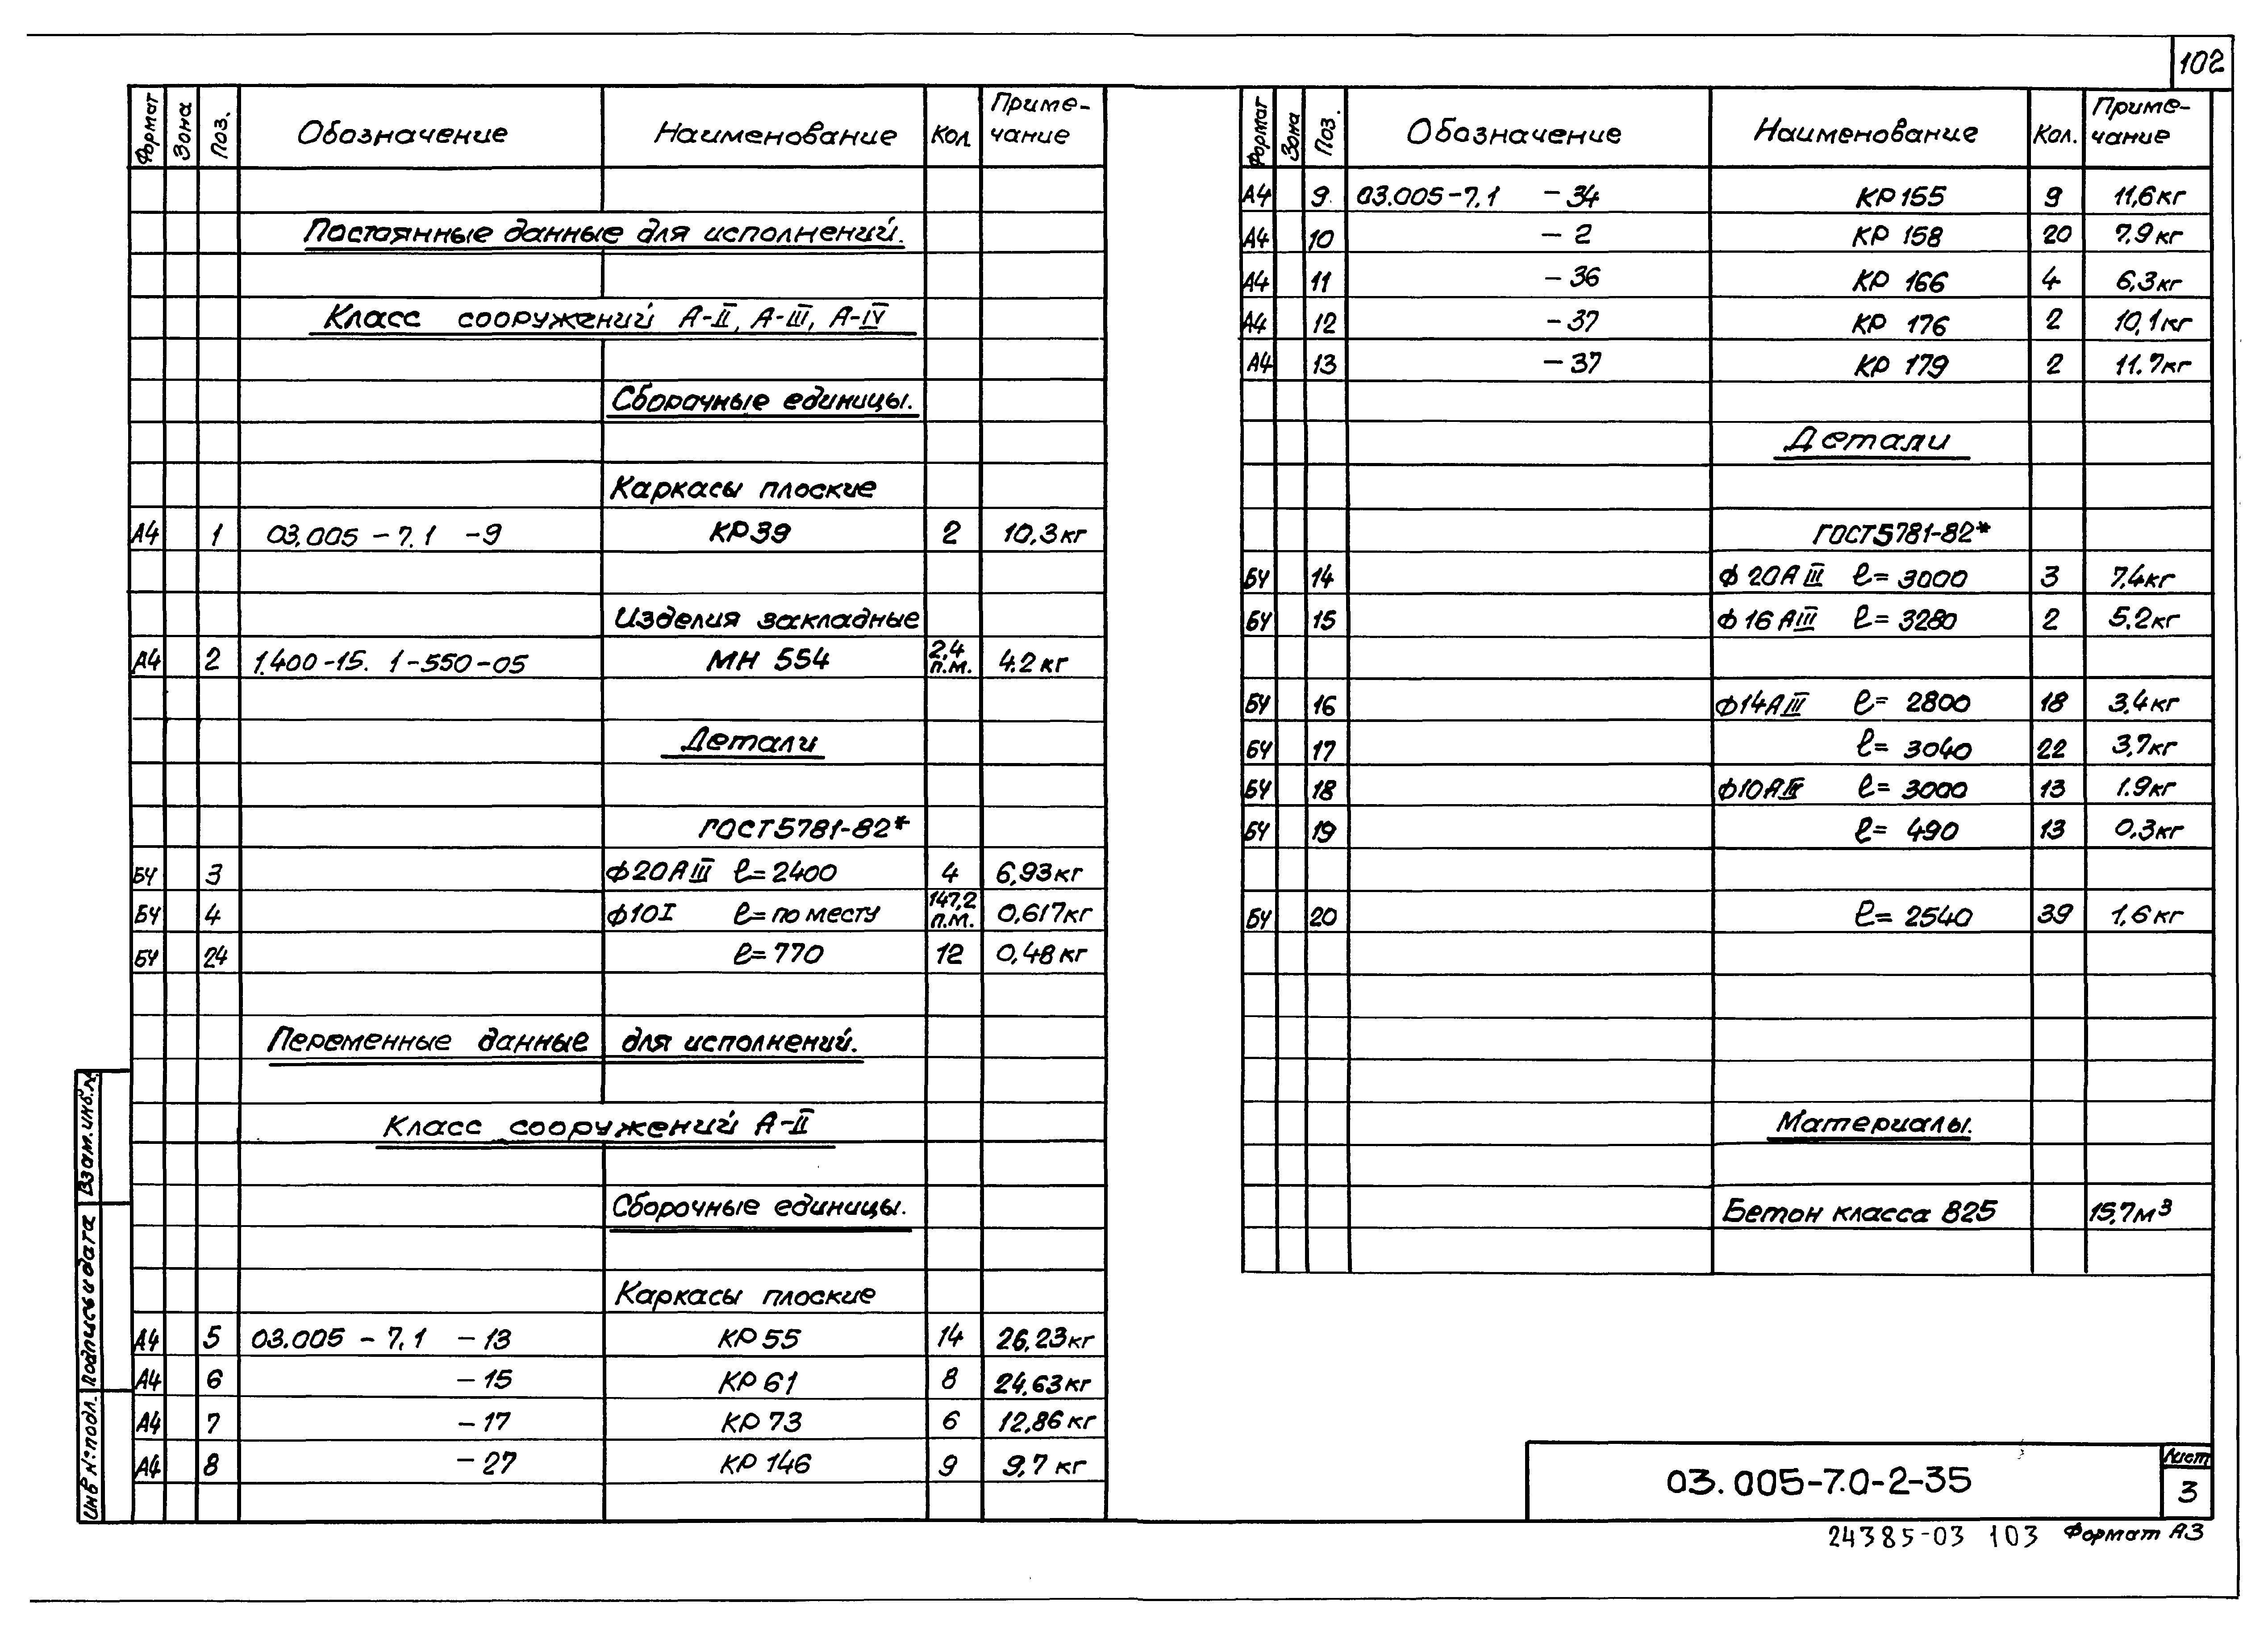 102
Формат Зона Поз. Обозначение Наименование Кол. Приме-чание
Постоянные данные для исполнений.
Класс сооружений А-II, А-III, А-IV
Сборочные единицы.
Каркасы плоские
А4 1 03.005-7.1 -9 КР39 2 10,3кг
Изделия закладные
А4 2 1.400-15. 1-550-05 МН 554 2,4 п.м. 4.2кг
Детали
ГОСТ5781-82*
БЧ 3 ф20АIII ℓ=2400 4 6,93кг
БЧ 4 ф10I ℓ=по месту 147,2 п.м. 0,617кг
БЧ 24 ℓ=770 12 0,48кг
Переменные данные для исполнений.
Класс сооружений А-II
Сборочные единицы.
Каркасы плоские
А4 5 03.005-7.1 -13 КР55 14 26,23кг
А4 6 -15 КР61 8 24,63кг
А4 7 -17 КР73 6 12,86кг
А4 8 -27 КР146 9 9,7кг
Формат Зона Поз. Обозначение Наименование Кол. Приме-чание
А4 9 03.005-7.1 -34 КР155 9 11,6кг
А4 10 -2 КР 158 20 7.9кг
А4 11 -36 КР 166 4 6,3кг
А4 12 -37 КР 176 2 10,1кг
А4 13 -37 КР 179 2 11.7кг
Детали
ГОСТ5781-82*
БЧ 14 ф20АIII ℓ=3000 3 7,4кг
БЧ 15 ф16АIII ℓ=3280 2 5.2кг
БЧ 16 ф14АIII ℓ=2800 18 3,4кг
БЧ 17 ℓ=3040 22 3,7кг
БЧ 18 ф10АIII ℓ=3000 13 1.9кг
БЧ 19 ℓ=490 13 0,3кг
БЧ 20 ℓ=2540 39 1,6кг
Материалы.
Бетон класса В25 15,7м³
Взам.инв.N
Подпись и дата
Инв N:подл.
03.005-7.0-2-35
Лист
3
24385-03 103 Формат А3